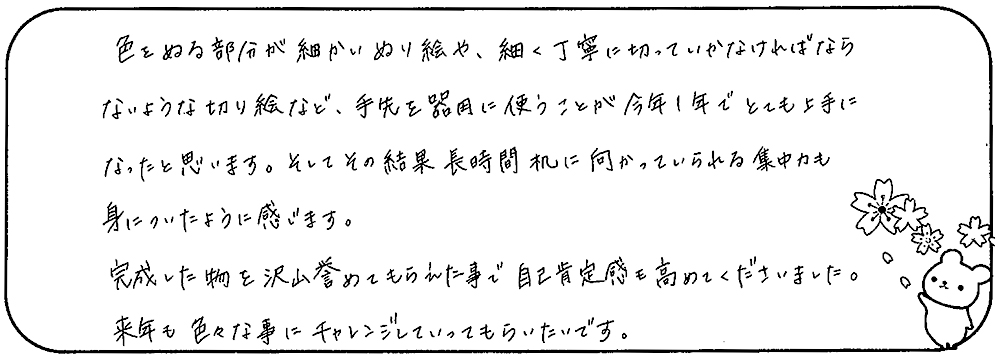 色をぬる部分が細かいぬり絵や、細く丁寧に切っていかなければなら
ないような切り絵など、手先を器用に使うことが今年1年でとても上手に
なったと思います。そしてその結果長時間机に向かっていられる集中力も
身についたように感じます。
完成した物を沢山誉めてもらえた事で自己肯定感も高めてくださいました。
来年も色々な事にチャレンジしていってもらいたいです。